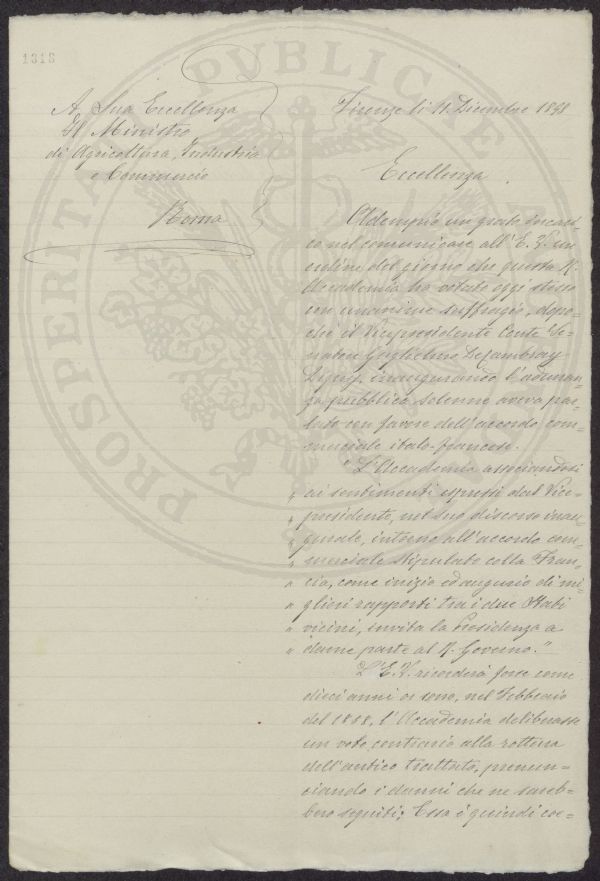 1313
A Sua Eccellenza
Il Ministro
di Agricoltura, Industria
e Commercio
Roma
Firenze li 11 Dicembre 1898
Eccellenza
Adempio un grato incari-
co nel comunicare all'E. V. un
ordine del giorno che questa R.
Accademia ha votato oggi stesso
con unanime suffragio, dopo-
chè il Vicepresidente Conte Se-
natore Guglielmo De Cambray
Digny, inaugurando l'adunan-
za pubblica solenne aveva par-
lato con favore dell'accordo com-
merciale italo-francese.
"L'Accademia associandosi
" ai sentimenti espressi dal Vice-
" presidente, nel suo discorso inau-
" gurale, intorno all'accordo com-
" merciale stipulato colla Fran-
" cia, come inizio ed augurio di mi-
" gliori rapporti tra i due Stati
" vicini, invita la Presidenza a
" darne parte al R. Governo."
L'E. V. ricorderà forse come
dieci anni or sono, nel Febbraio
del 1888, l'Accademia deliberasse
un voto contrario alla rottura
dell'antico trattato, prenun-
ciando i danni che ne sareb-
bero seguiti; Essa è quindi coe-
PROSPERITATI PVBLICAE